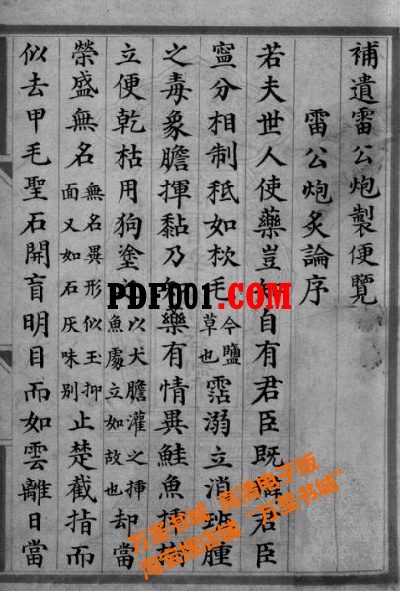 補遺雷公炮製便覽
雷公炮炙論序
若夫世人使藥豈自有君臣既君臣
寍分相制秪如栨毛今鹽草也霑溺立消班腫
之毒象膽揮黏乃藥有情異鮭魚插
立便乾枯用狗塗以犬膽灌之揷魚處立如故也却當
榮盛無名無名異形似玉抑面又如石灰味別止楚截指而
似去甲毛聖石開盲明目而如雲離日當
PDF001.COM
万圣书城 高清电子版
淘宝搜店铺“万圣书城”